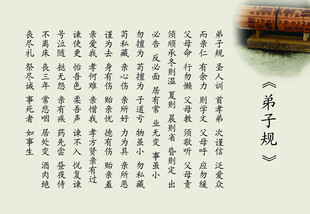 《弟子规》
弟子规 圣人训 首孝弟 次谨信 泛爱众
而亲仁 有余力 则学文 父母呼 应勿缓
父母命 行勿懒 父母教 须敬听 父母责
须顺承 冬则温 夏则 晨则省 昏则定 出
必告 反必面 居有常 业无变 事虽小
勿擅为 苟擅为 子道亏 物虽小 勿私藏
苟私藏 亲心伤 亲所好 力为具 亲所恶
谨为去 身有伤 贻亲忧 德有伤 贻亲羞
亲爱我 孝何难 亲憎我 孝方贤 亲有过
谏使更 怡吾色 柔吾声 谏不入 悦复谏
号泣随 挞无怨 亲有疾 药先尝 昼夜侍
不离床 丧三年 常悲咽 居处变 酒肉绝
丧尽礼 祭尽诚 事死者 如事生